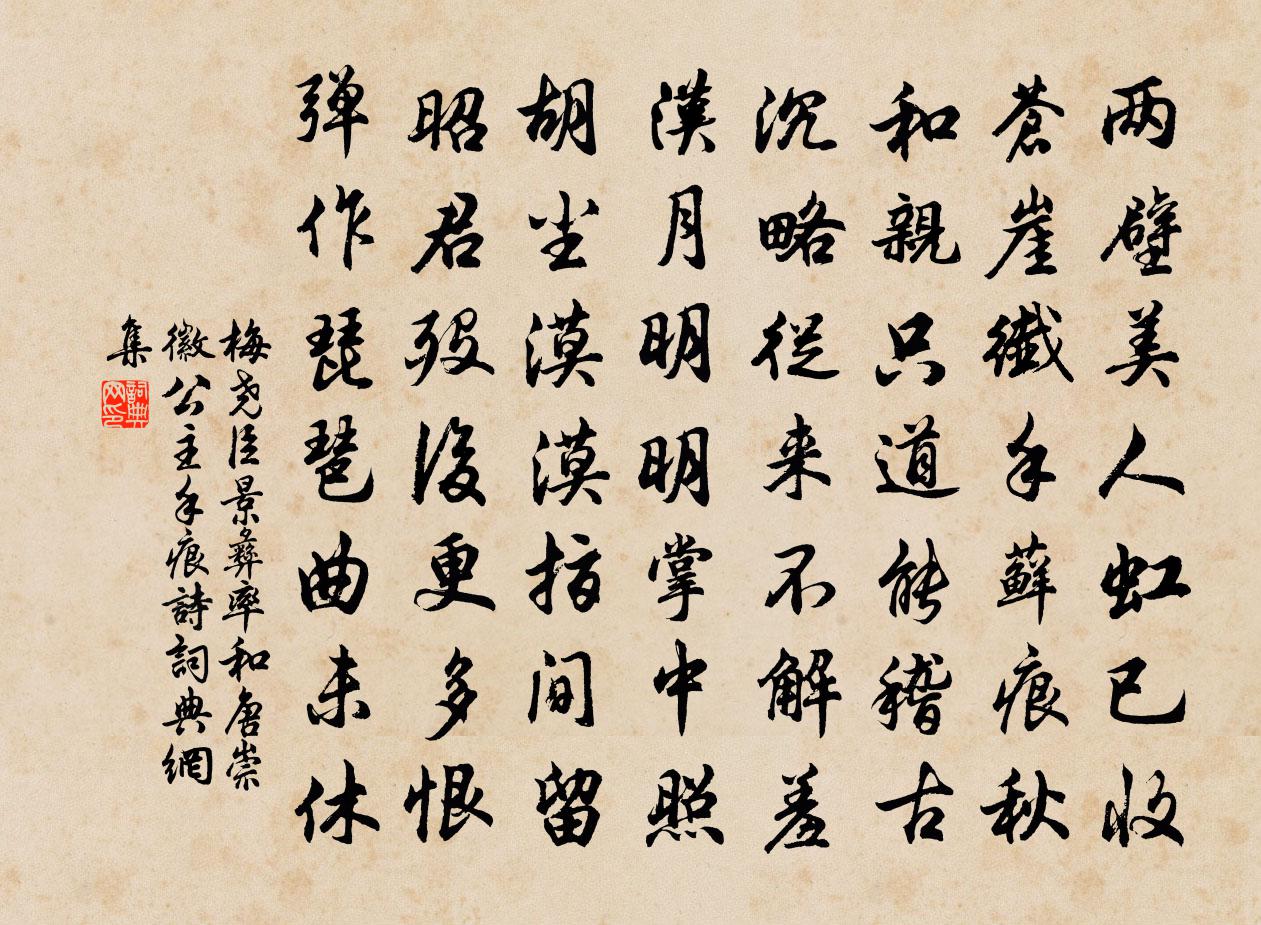 两壁美人虹已收
苍崖纤手藓痕秋
和親只道能稽古
沉略従来不解羞
漢月明明掌中照
胡尘漠漠指间留
昭君殁後更多恨
弹作琵琶曲未休
梅尧臣景彝率和唐崇
徽公主手痕詩詞典網
集
詞典网印